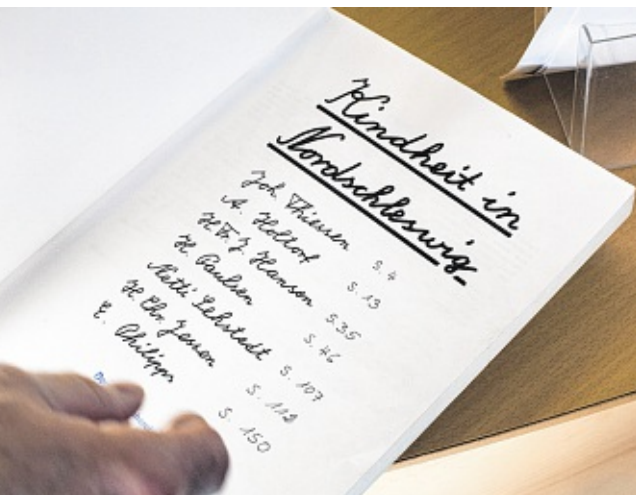 Kindheit in
Nordschleswig
Joh. Thiessen S. 4
A. Holtorf S. 13
H. Fr. J. Hanson S. 35
H. Paulsen S. 46
Matti Lehstadt S. 107
H. Chr. Jessen S. 112
E. Philipps S. 150